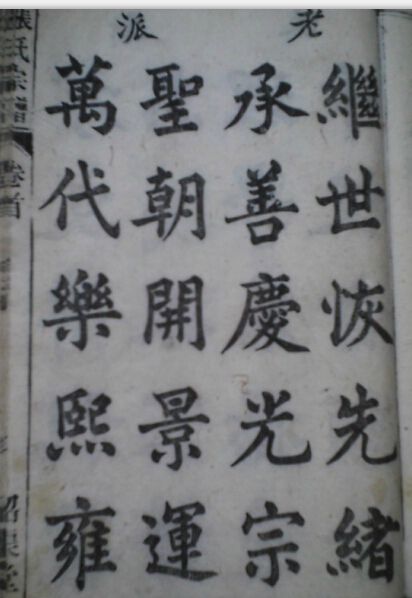 老派
繼世恢先緒
承善慶光宗
聖朝開景運
萬代樂熙雍
張氏宗譜
卷首